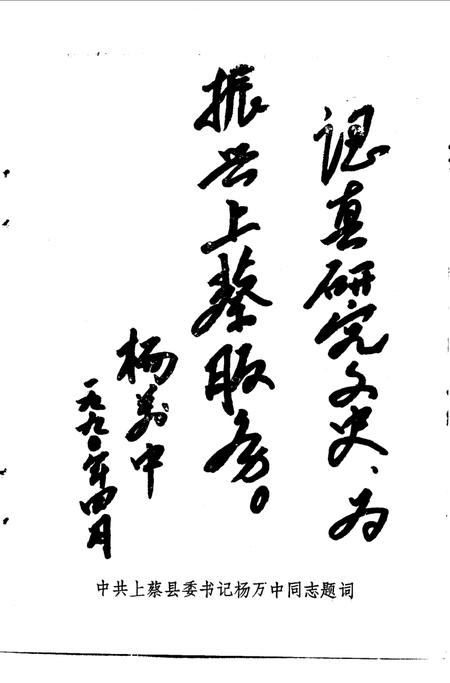 认真研究文史、为
振兴上蔡服务。
杨万中
一九九〇年四月
中共上蔡县委书记杨万中同志题词